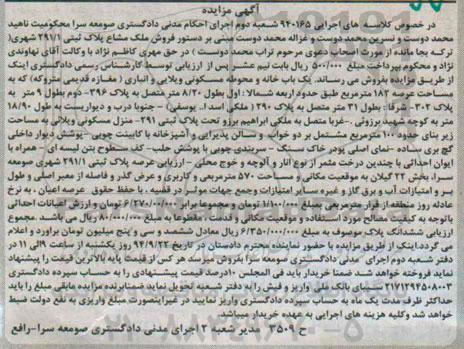 آگهی مزایده
در خصوص کلاسه های اجرایی ۹۴۰۱۶۵ شعبه دوم اجرای احکام مدنی دادگستری صومعه سرا محکومیت ناهید
محمد دوست و نسرین محمددوست و غزاله محمددوست مبنی بر دستور فروش ملک مشاع پلاک ثبتی ۲۹۱/۱ شهری(
ترکه بجا مانده از مورث اصحاب دعوی مرحوم تراب محمد دوست ) در حق مهری کاظم نژاد با وکالت آقای نهاوندی
نژاد و محکوم پرداخت مبلغ ۵۰۰/۰۰۰ ریال بابت نیم عشر پس از ارزیابی توسط کارشناس رسمی دادگستری اینک
از طریق مزایده بفروش می رساند. یک باب خانه و محوطه مسکونی ویلایی و انباری ( مغازه قدیمی متروکه) که به
مساحت عرصه ۱۸۳ مترمربع طبق حدود اربعه شمالا : اول بطول ۸/۲۰ متر متصل به پلاک ۳۹۶- دوم بطول ۹ متر به
پلاک ۳۰۲- شرقا : بطول ۳۱ متر متصل به پلاک ۲۹۰ ( ملکی اسدا.. یوسفی) - جنوبا درب و دیواریست به طول ۱۸/۹۰
متر به کوچه شهید برزوئی -غربا متصل به ملکی ابراهیم برزو تحت پلاک ثبتی ۲۹۱- منزل مسکونی ویلایی به مساحت
زیر بنای حدود ۱۰۰ مترمربع مشتمل بر دو خواب و سالن پذیرایی و آشپزخانه با کابینت چوبی -پوشش دیوار داخلی
گچ بری ساده -نمای اصلی پودر خاک سنگ- سربندی چوبی با پوشش حلب- کف سطوح بتن لیسه ای - همراه با
ایوان احداثی با چندین درخت مثمر از نوع انار و آلوچه و خوج محلی - ارزیابی عرصه پلاک ثبتی ۲۹۱/۱ شهری صومعه
سرا.بخش ۲۲ گیلان به موقعیت مکانی و مساحت ۵۷۰ مترمربعی و کاربری و عرض گذر و فاصله از معبر اصلی و طول
بر و امتیازات آب و برق گاز و غیره سایر امتیازات وجمع جهات موثر در قضیه . با حفظ حقوق عرصه اعیان . به نرخ
عادله روز منطقه از قرار مترمربعی ۱/۱۰۰/۰۰۰ تومان و مجموعا برابر ۶/۲۷۰/۰۰۰ تومان و ارزش اعیانات احداثی
باتوجه به کیفیت مصالح مورد استفاده و موقعیت مکانی و قدمت . مقطوعا به مبلغ ۸۰/۰۰۰/۰۰۰ ریال می باشد .مجموع
ارزیابی ششدانگ پلاک موصوف به مبلغ ۶/۳۵۰/۰۰۰/۰۰۰ ریال معادل ششصد و سی و پنج میلیون تومان براورد و اعلام
می گردد.اینک از طریق مزایده با حضور نماینده محترم دادستان در تاریخ ۹۴/۹/۲۲ روز یکشنبه از ساعت ۹الی ۱۱ در
دفتر شعبه دوم اجرای مدنی دادگستری صومعه سرا بفروش میرسد هر کس از قیمت پایه بالاترین قیمت را پیشنهاد
نماید فروخته خواهد شد ضمنا خریدار باید فی المجلس ۱۰درصد قیمت پیشنهادی را به حساب سپرده دادگستری
۲۱۷۱۲۹۴۵۰۸۰۰۳ سیبای بانک ملی واریز و فیش را به دفتر شعبه تحویل نماید ضمنابرنده مزایده مابقی مبلغ را باید
حداکثر ظرف مدت یک ماه به حساب سپرده دادگستری واریز نمایید در غیراینصورت مبلغ واریزی به نفع دولت ضبط
خواهد شد وکلیه هزینه های اجرایی به عهده خریدار میباشد.
ح ۳۵۰۹ مدیر شعبه ۲ اجرای مدنی دادگستری صومعه سرا-رافع